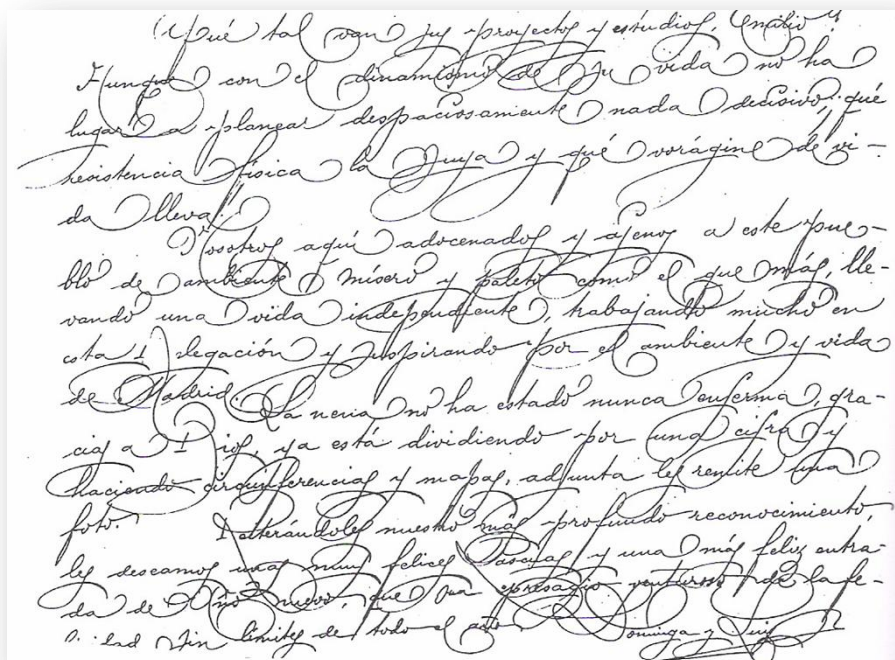 ¿Qué tal van sus proyectos y estudios, Emilio?
Aunque con el dinamismo de su vida no ha
lugar a planear despaciosamente nada decisivo; ¡qué
resistencia física la suya y qué vorágine de vi-
da lleva!
Nosotros aquí adocenados y ajenos a este pue-
blo de ambiente mísero y paleto como el que más, lle-
vando una vida independiente, trabajando mucho en
esta Delegación y suspirando por el ambiente y vida
de Madrid. La nena no ha estado nunca enferma, gra-
cias a Dios, ya está dividiendo por una cifra y
haciendo circunferencias y mapas, adjunta les remite una
foto. Reiterándoles nuestro más profundo reconocimiento,
les deseamos unas muy felices Pascuas y una más feliz entra-
da de Año Nuevo, que sea presagio venturoso de la fe-
sin límites de todo el año. Dominga y Luis